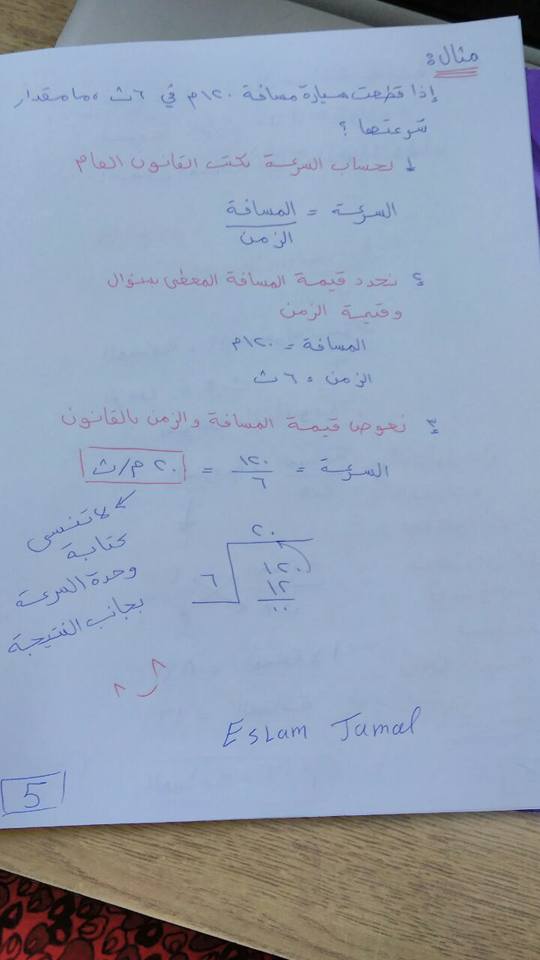 مثال:
إذا قطعت سيارة مسافة ١٢٠م في ٦ ث ، ما مقدار
سرعتها ؟
١ لحساب السرعة نكتب القانون العام
السرعة = المسافة
الزمن
٢ نحدد قيمة المسافة المعطى بسؤال
وقيمة الزمن
المسافة = ١٢٠م
الزمن = ٦ ث
٣ نعوض قيمة المسافة والزمن بالقانون
السرعة = ١٢٠/٦ = ٢٠ م/ث
لا تنسى
كتابة
وحدة السرعة
بجانب النتيجة
٢٠
٦ ١٢٠
١٢
٠٠
Eslam Jamal
5